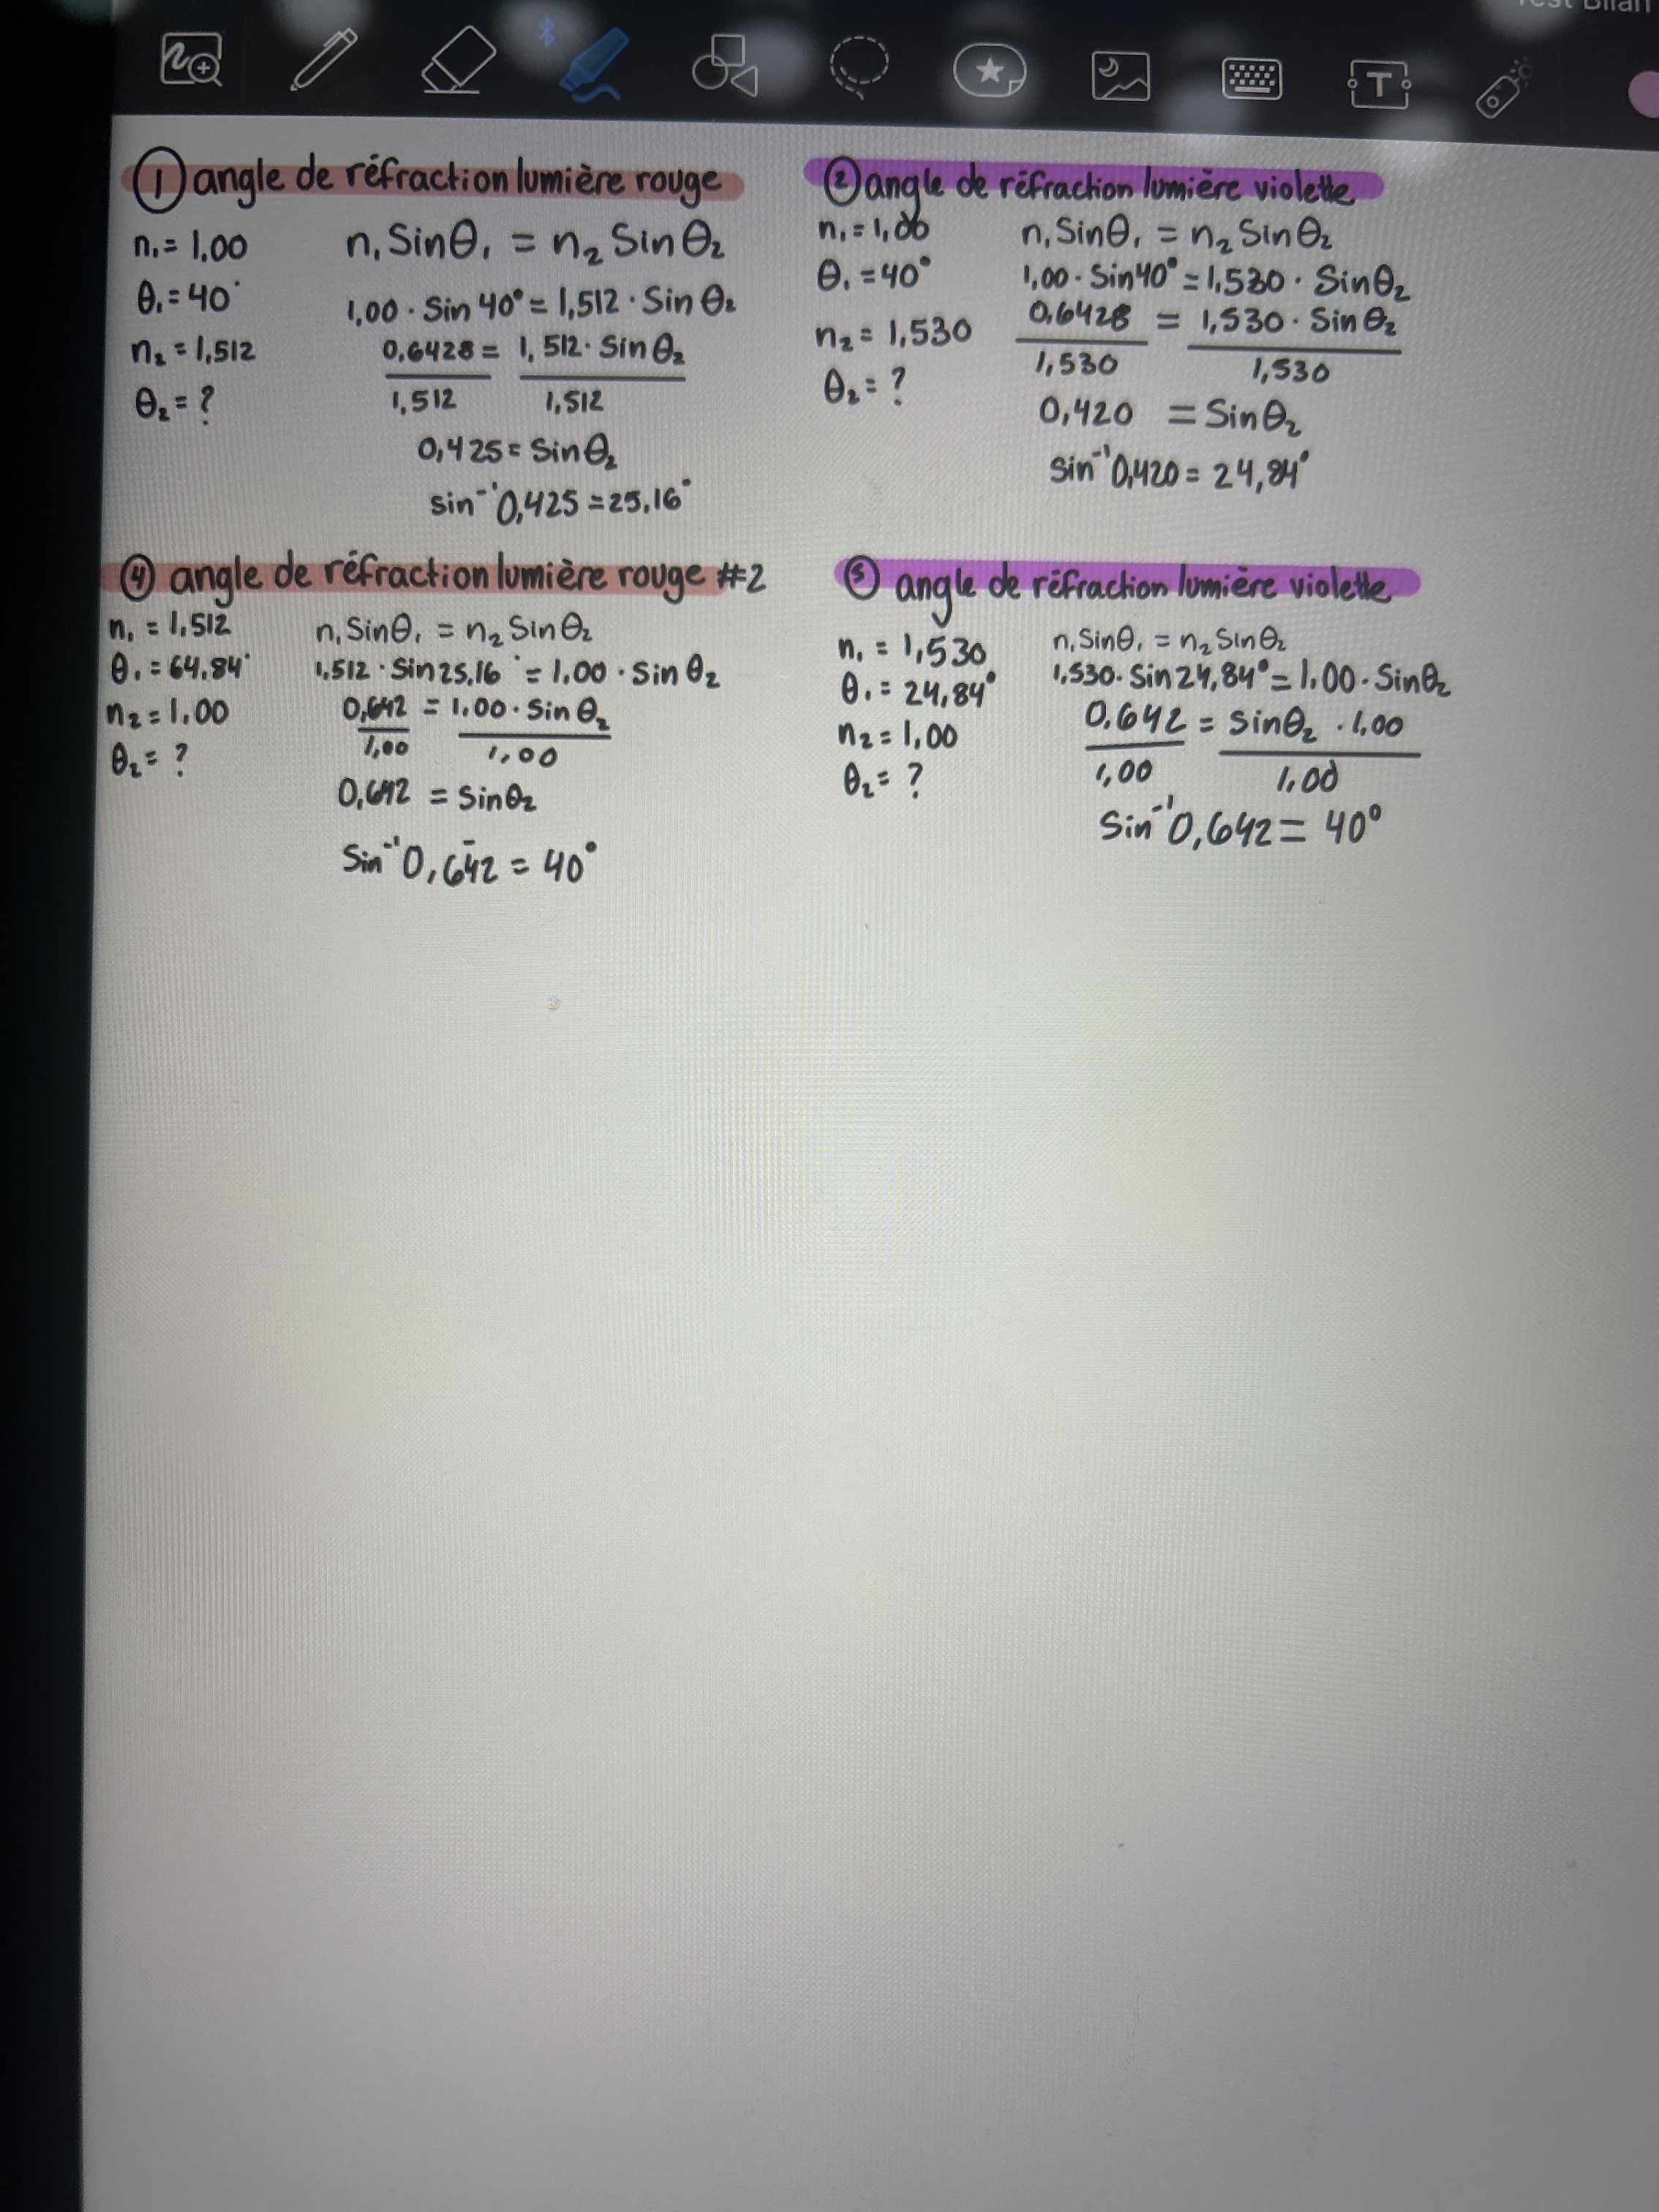 Test Bilan
T
① angle de réfraction lumière rouge
n₁ = 1,00
θ₁ = 40°
n₂ = 1,512
θ₂ = ?
n₁ Sinθ₁ = n₂ Sin θ₂
1,00 · Sin 40° = 1,512 · Sin θ₂
0,6428 = 1,512 · Sin θ₂
1,512 1,512
0,425 = Sin θ₂
sin⁻¹ 0,425 = 25,16°
② angle de réfraction lumière violette
n₁ = 1,00
θ₁ = 40°
n₂ = 1,530
θ₂ = ?
n₁ Sinθ₁ = n₂ Sinθ₂
1,00 · Sin40° = 1,530 · Sinθ₂
0,6428 = 1,530 · Sin θ₂
1,530 1,530
0,420 = Sin θ₂
sin⁻¹ 0,420 = 24,84°
④ angle de réfraction lumière rouge #2
n₁ = 1,512
θ₁ = 64,84°
n₂ = 1.00
θ₂ = ?
n₁ Sinθ₁ = n₂ Sinθ₂
1,512 · Sin 25,16° = 1.00 · Sin θ₂
0,642 = 1.00 · Sin θ₂
1,00 1,00
0,642 = Sinθ₂
Sin⁻¹ 0,642 = 40°
⑤ angle de réfraction lumière violette
n₁ = 1,530
θ₁ = 24,84°
n₂ = 1,00
θ₂ = ?
n₁ Sinθ₁ = n₂ Sinθ₂
1,530 · Sin 24,84° = 1.00 · Sinθ₂
0.642 = Sinθ₂ · 1,00
1,00 1,00
Sin⁻¹ 0,642 = 40°